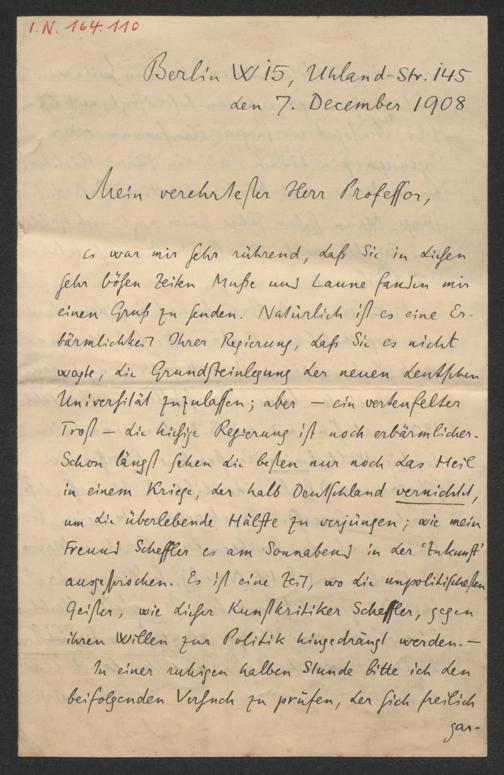 I.N. 164.110
Berlin W 15, Uhland-Str. 145
den 7. December 1908
Mein verehrtester Herr Professor,
es war mir sehr rührend, daß Sie in diesen
sehr bösen Zeiten Muße und Laune fanden mir
einen Gruß zu senden. Natürlich ist es eine Er-
bärmlichkeit Ihrer Regierung, daß Sie es nicht
wagte, die Grundsteinlegung der neuen deutschen
Universität zuzulassen; aber — ein verteufelter
Trost — die hiesige Regierung ist noch erbärmlicher.
Schon längst sehen die besten nur noch das Heil
in einem Kriege, der halb Deutschland vernichtet,
um die überlebende Hälfte zu verjüngen; wie mein
Freund Scheffler es am Sonnabend in der 'Zukunft'
ausgesprochen. Es ist eine Zeit, wo die unpolitischesten
Geister, wie dieser Kunstkritiker Scheffler, gegen
ihren Willen zur Politik hingedrängt werden. —
In einer ruhigen halben Stunde bitte ich den
beifolgenden Versuch zu prüfen, der sich freilich
gar-